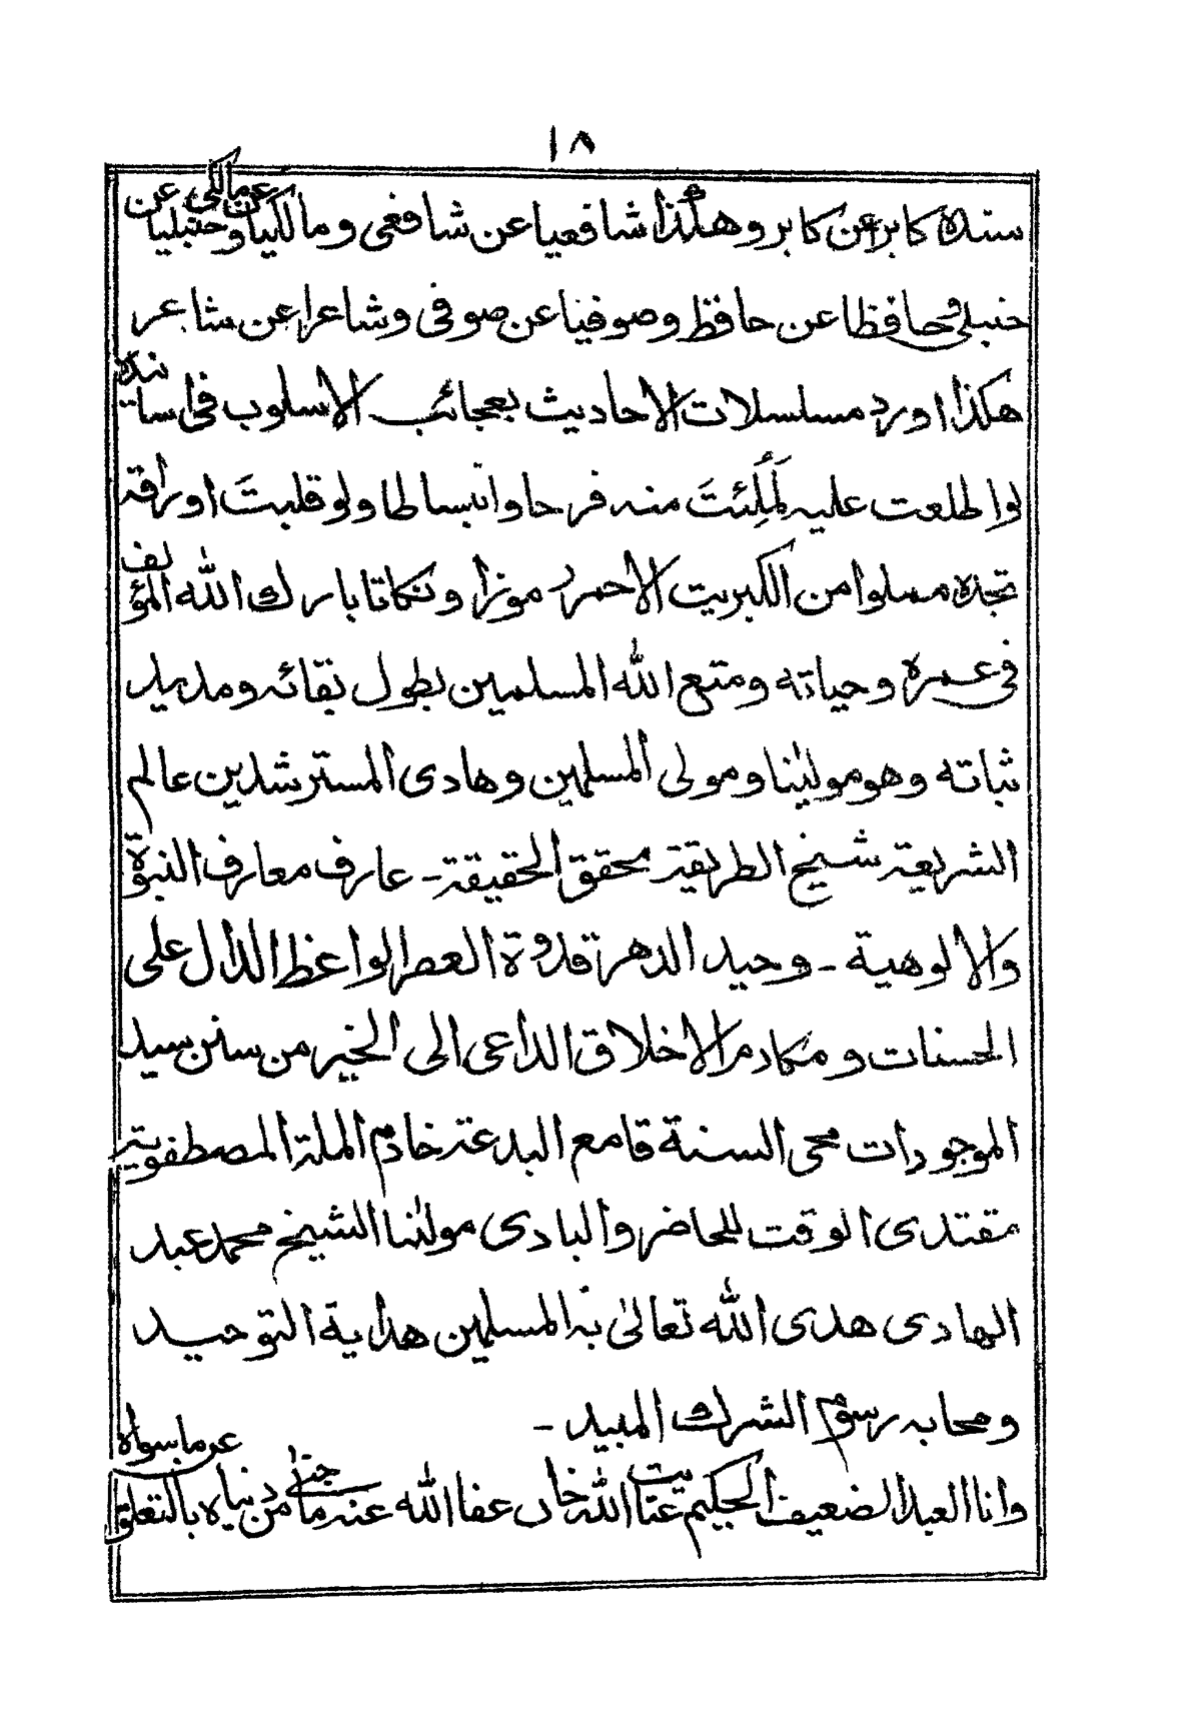 ١٨
سنده كابرا عن كابر وهكذا شافعيا عن شافعى ومالكيا عن مالكى وحنبليا عن
حنبلى وحافظا عن حافظ وصوفيا عن صوفى وشاعرا عن شاعر
هكذا اورد مسلسلات الاحاديث بعجائب الاسلوب فى اسانيده
لو اطلعت عليه لَمُلِئتَ منه فرحا وانبساطا ولو قلبتَ اوراقه
تجده مملوا من الكبريت الاحمر رموزا ونكاتا بارك الله المؤلف
فى عمره وحياته ومتع الله المسلمين بطول بقائه ومديد
ثباته وهو مولينا ومولى المسلمين وهادى المسترشدين عالم
الشريعة شيخ الطريقة محقق الحقيقة - عارف معارف النبوة
والالوهية - وحيد الدهر قدوة العصر الواعظ الدال على
الحسنات ومكارم الاخلاق الداعى الى الخير من سنن سيد
الموجودات محى السنة قامع البدعة خادم الملة المصطفوية
مقتدى الوقت للحاضر والبادى مولنا الشيخ محمد عبد
الهادى هدى الله تعالى به المسلمين هداية التوحيد
ومحا به رسوم الشرك المبيد -
وانا العبد الضعيف الحكيم عنايت الله خان عفا الله عنه ما جنى من دنياه بالتعلق عن ماسواه